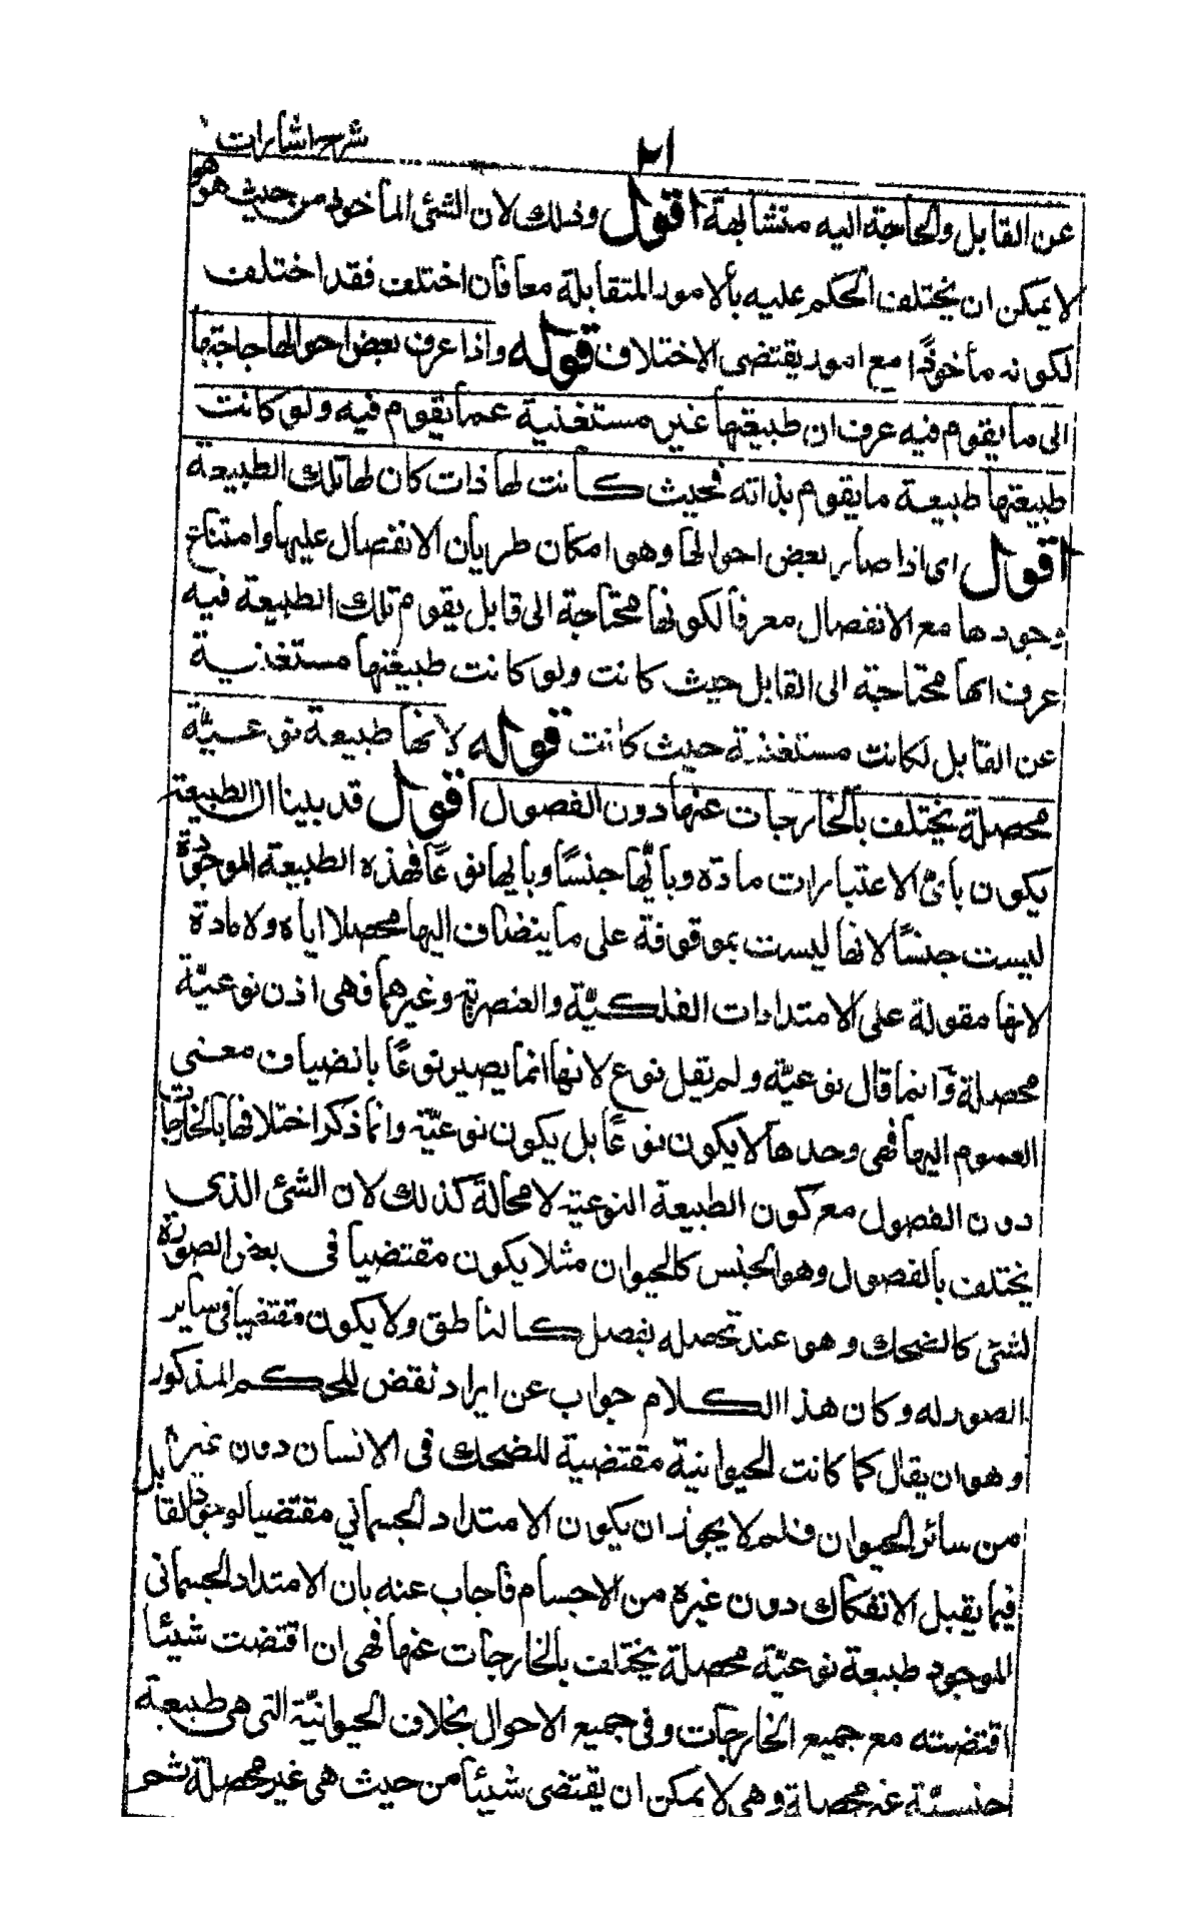 شرح اشارات
٢١
عن القابل والحاجة اليه متشابهة اقول وذلك لان الشئ المأخوذ من حيث هو هو
لا يمكن ان يختلف الحكم عليه بالامور المتقابلة معا فان اختلف فقد اختلف
لكونه مأخوذا مع امور يقتضى الاختلاف قوله واذا عرف بعض احوالها حاجتها
الى ما يقوم فيه عرف ان طبيعتها غير مستغنية عما يقوم فيه ولو كانت
طبيعتها طبيعة ما يقوم بذاته فحيث كانت لها ذات كان لها تلك الطبيعة
اقول اى اذا صار بعض احوالها وهو امكان طريان الانفصال عليها وامتناع
وجودها مع الانفصال معرفا لكونها محتاجة الى قابل يقوم تلك الطبيعة فيه
عرف انها محتاجة الى القابل حيث كانت ولو كانت طبيعتها مستغنية
عن القابل لكانت مستغنية حيث كانت قوله لانها طبيعة نوعيّة
محصلة يختلف بالخارجات عنها دون الفصول اقول قد بينا ان الطبيعة
يكون باىّ الاعتبارات مادّة وبايّها جنسًا وبايها نوعًا فهذه الطبيعة الموجودة
ليست جنسًا لانها ليست بموقوفة على ما ينضاف اليها محصلا اياه ولا مادة
لانها مقولة على الامتدادات الفلكيّة والعنصرية وغيرهما فهى اذن نوعيّة
محصلة وانما قال نوعيّة ولم يقل نوع لانها انما يصير نوعًا بانضياف معنى
العموم اليها فهى وحدها لا يكون نوعًا بل يكون نوعيّة وانما ذكر اختلافها بالخارجات
دون الفصول مع كون الطبيعة النوعية لا محالة كذلك لان الشئ الذى
يختلف بالفصول وهو الجنس كالحيوان مثلا يكون مقتضيا فى بعض الصورة
لشئ كالضحك وهو عند تحصله بفصل كالناطق ولا يكون مقتضيا فى ساير
الصور له وكان هذا الكلام جواب عن ايراد نقض للحكم المذكور
وهو ان يقال كما كانت الحيوانية مقتضية للضحك فى الانسان دون غيره
من سائر الحيوان فلم لا يجوز ان يكون الامتداد الجسمانى مقتضيا لوجود القابل
فيما يقبل الانفكاك دون غيره من الاجسام فاجاب عنه بان الامتداد الجسمانى
الموجود طبيعة نوعيّة محصلة يختلف بالخارجات عنها فهى ان اقتضت شيئا
اقتضته مع جميع الخارجات وفى جميع الاحوال بخلاف الحيوانيّة التى هى طبيعة
جنسيّة غير محصلة وهى لا يمكن ان يقتضى شيئا من حيث هى غير محصلة ثم